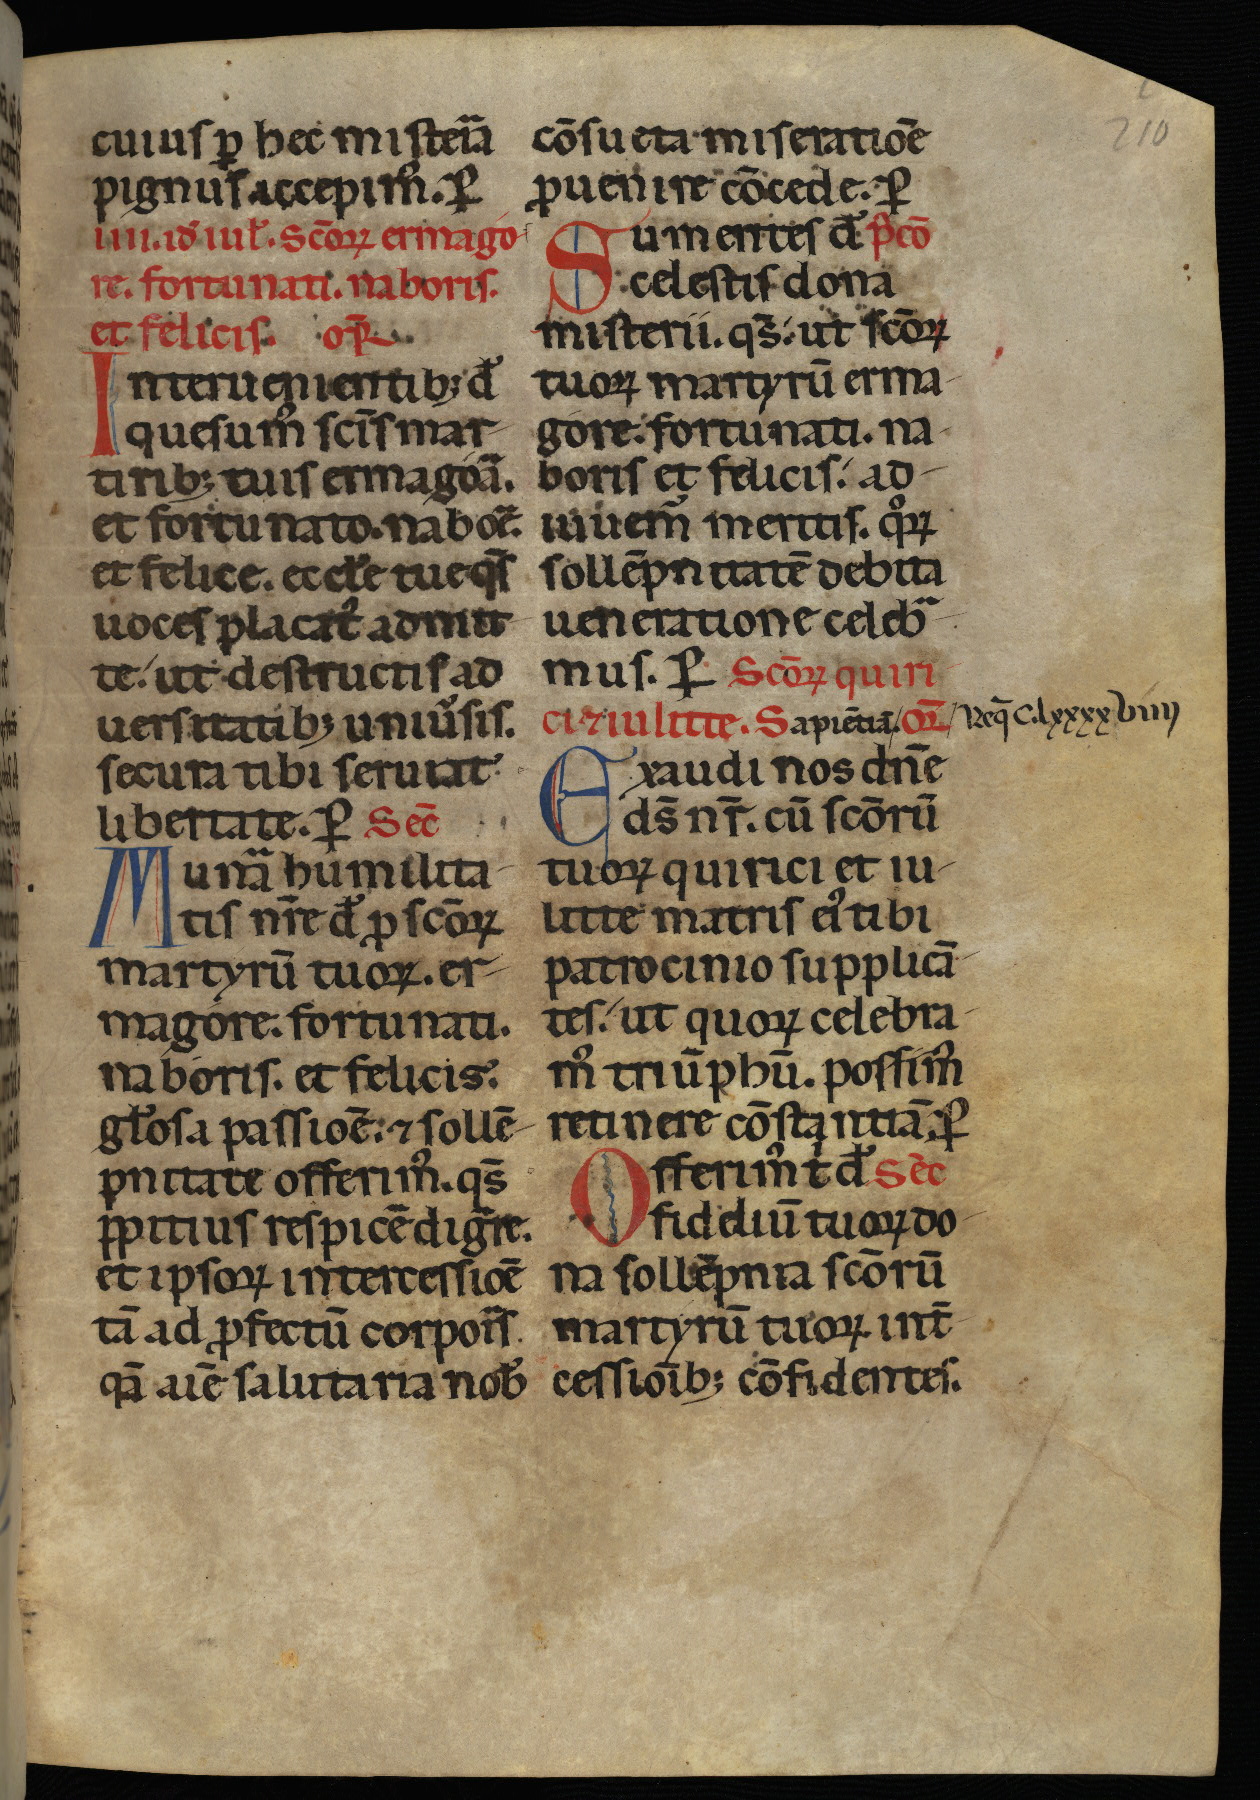 cuius ꝑ hec misteͣia
pignus accepim᷒. ꝑ
iiii. id᷒ iul̵. Sc̄oꝝ ermago
re. fortunati. naboris.
et felicis. or̄
Interuenientib; d̄s
quesum᷒ sc̄is mar-
tirib; tuis ermagoͣa.
et fortunato. naboꝛe.
et felice. eccl̵e tue qs̄
uoces placat᷒ admit-
te. ut destructis ad
uersitatib; uniu᷒sis.
secura tibi seruiat
libertate. ꝑ Sec̄
Munͣa humilita-
tis nr̄e d̄s ꝓ sc̄oꝝ
martyrū tuoꝝ. er-
magore. fortunati.
naboris. et felicis.
gl̵osa passioē. ⁊ sollē-
pnitate offerim᷒. qs̄
ꝓpitius respicē digͣre.
et ipsoꝝ intercessioē
tā ad ꝓfectū corporis
qͣ̄ aīe salutaria nob̵
cōsueta miseratioē
ꝓuenire cōcede. ꝑ
Sumentes d̄s p᷒cō
celestis dona
misterii. qs̄. ut sc̄oꝝ
tuoꝝ martyrū erma-
gore. fortunati. na-
boris et felicis. ad-
iuuem᷒ meritis. qͦꝝ
sollēpnitatē debita
ueneratione celebͣ-
mus. ꝑ Sc̄oꝝ quiri
ci ⁊ iulitte. Sapiētiā/ or̄ / Req̄ C.lxxxxviiii
Exaudi nos dn̄e
ds̄ nr̄. cū sc̄orū
tuoꝝ quirici et iu-
litte matris ei᷒ tibi
patrocinio supplicā-
tes. ut quoꝝ celebra-
m᷒ triūphū. possim᷒
retinere cōstantiā. ꝑ
Offerim᷒ t͛ d̄s Sec̄
fideliū tuoꝝ do-
na sollēpnia sc̄orū
martyrū tuoꝝ. int̄-
cessioīb; cōfidentes.
210